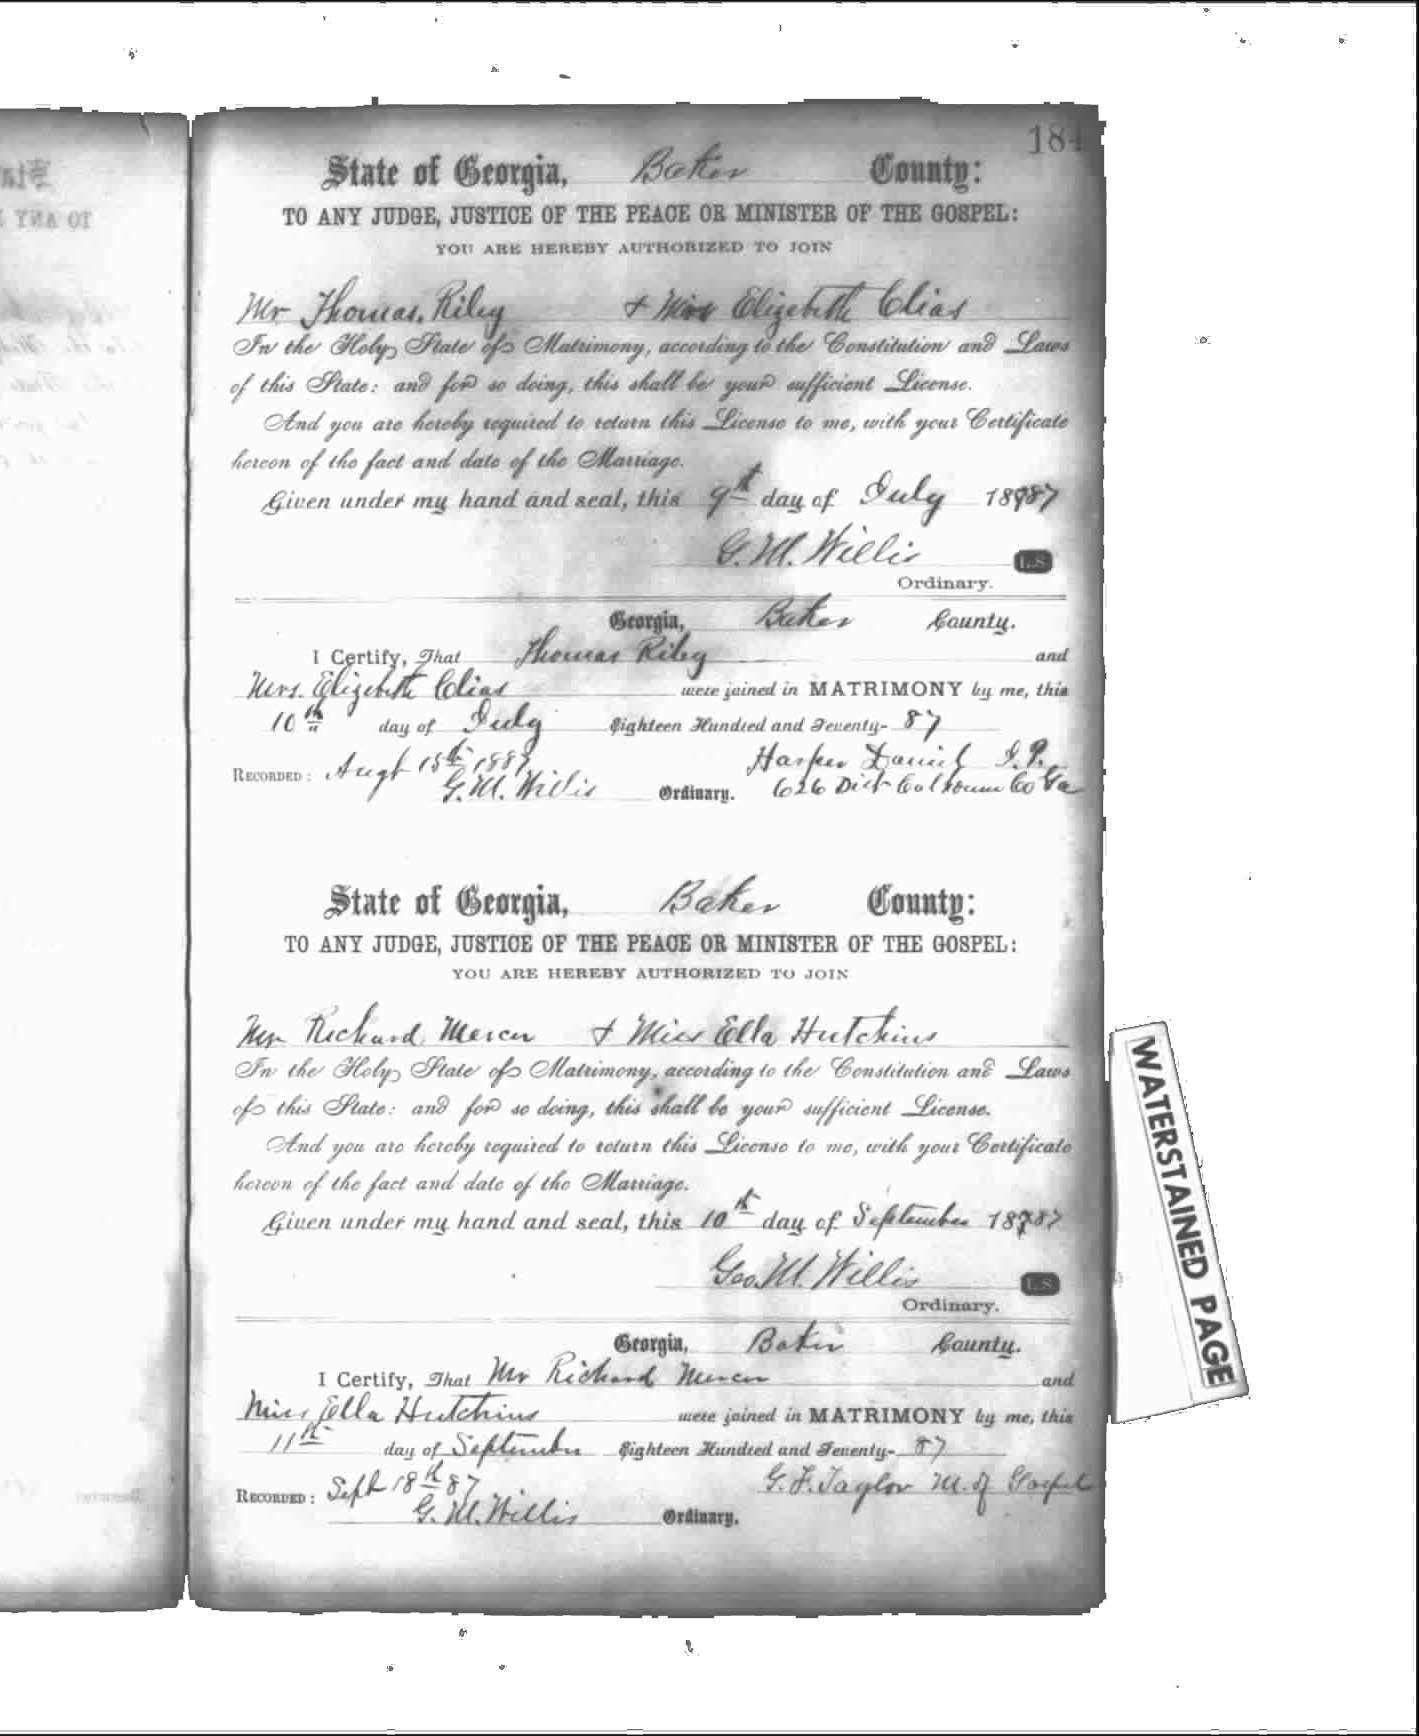 184
State of Georgia, Baker County:
TO ANY JUDGE, JUSTICE OF THE PEACE OR MINISTER OF THE GOSPEL:
YOU ARE HEREBY AUTHORIZED TO JOIN
Mr Thomas Riley & Mrs Elizebeth Clias
In the Holy State of Matrimony, according to the Constitution and Laws
of this State: and for so doing, this shall be your sufficient License.
And you are hereby required to return this License to me, with your Certificate
hereon of the fact and date of the Marriage.
Given under my hand and seal, this 9th day of July 1887
G. M. Willis L.S.
Ordinary.
Georgia, Baker County.
I Certify, That Thomas Riley and
Mrs. Elizebeth Clias were joined in MATRIMONY by me, this
10th day of July Eighteen Hundred and Seventy- 87
Harper Daniel J.P.
RECORDED: Augt 15th 1887
G. M. Willis Ordinary. 626 Dist Calhoun Co Ga
State of Georgia, Baker County:
TO ANY JUDGE, JUSTICE OF THE PEACE OR MINISTER OF THE GOSPEL:
YOU ARE HEREBY AUTHORIZED TO JOIN
Mr Richard Mercer & Miss Ella Hutchins
In the Holy State of Matrimony, according to the Constitution and Laws
of this State: and for so doing, this shall be your sufficient License.
And you are hereby required to return this License to me, with your Certificate
hereon of the fact and date of the Marriage.
Given under my hand and seal, this 10th day of September 1887
Geo. M. Willis L.S.
Ordinary.
Georgia, Baker County.
I Certify, That Mr Richard Mercer and
Miss Ella Hutchins were joined in MATRIMONY by me, this
11th day of September Eighteen Hundred and Seventy- 87
G. F. Taylor M. of Gospel
RECORDED: Sept 18th 87
G. M. Willis Ordinary.
WATERSTAINED PAGE